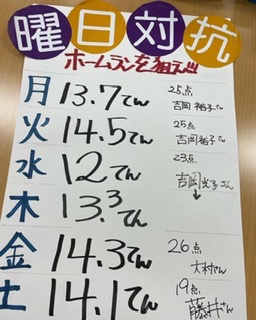 曜日対抗
ホームランを狙え!!!
月 13.7てん 25点 吉岡裕子さん
火 14.5てん 25点 吉岡裕子さん
水 12てん 23点 吉岡光子さん
木 13.3てん ↓
金 14.3てん 26点 大村さん
土 14.1てん 19点 藤井さん